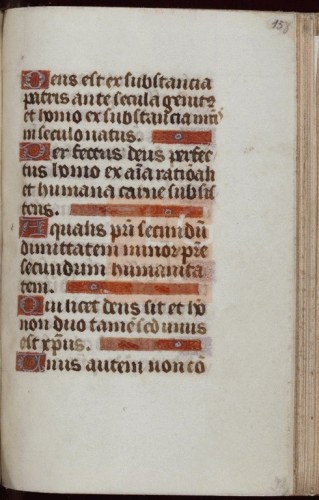 158
Deus est ex substancia
patris ante secula genitꝰ
et homo ex substancia mr̄is
in seculo natus.
Perfectus deus perfec
tus homo ex aīa rationali
et humana carne subsis
tens.
Equalis prī secundū
diuinitatem minor pr̄e
secundum humanita
tem.
Qui licet deus sit et ho
non duo tamē sed unus
est xp̄us.
Unus autem non cō